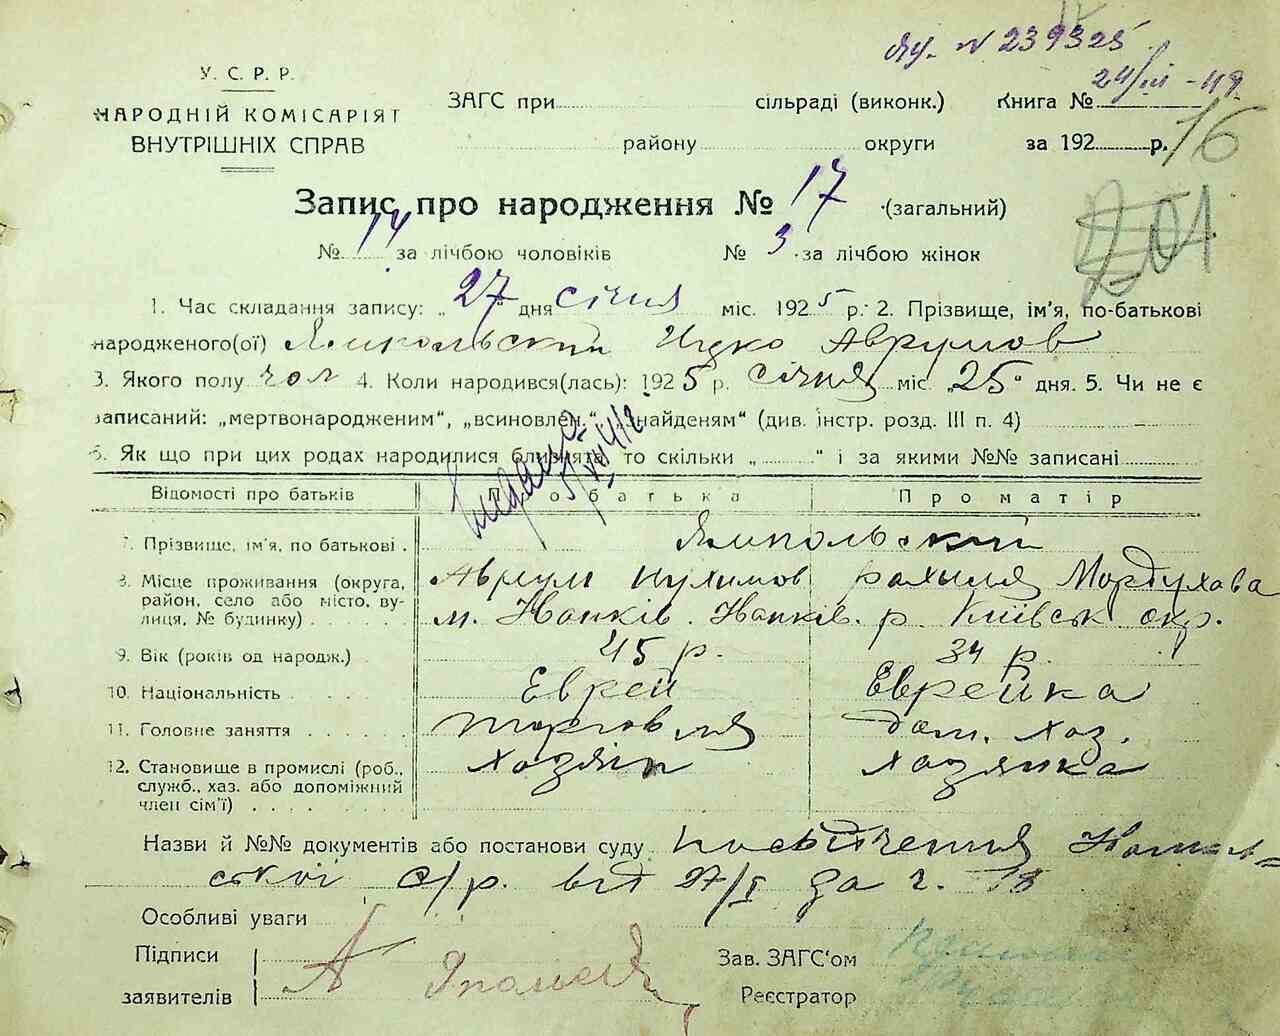 У. С. Р. Р.
НАРОДНІЙ КОМІСАРІЯТ
ВНУТРІШНІХ СПРАВ
№ 239325
24/III -49
ЗАГС при сільраді (виконк.) Книга №
району округи за 192 р. 16
Запис про народження № 17 (загальний)
№ 14 за лічбою чоловіків № 3 за лічбою жінок
1. Час складання запису: „27" дня січня міс. 1925 р. 2. Прізвище, ім'я, по-батькові
народженого(ої) Ямпольский Ицко Аврумов
3. Якого полу чол 4. Коли народився(лась): 1925 р. січня міс. „25" дня. 5. Чи не є
записаний: „мертвонародженим“, „всиновлен.“, „знайденям“ (див. інстр. розд. III п. 4)
6. Як що при цих родах народилися близнята, то скільки „ “ і за якими №№ записані
Відомості про батьків Про батька Про матір
7. Прізвище, ім'я, по батькові . Ямпольский
Аврум Нухимов Рахиля Мордухова
8. Місце проживання (округа,
район, село або місто, ву-
лиця, № будинку) м. Київськ окр.
9. Вік (років од народж.) 45 р. 34 р.
10. Національність Еврей Еврейка
11. Головне заняття торговля дом. хоз.
12. Становище в промислі (роб.,
служб., хаз. або допоміжний
член сім'ї) хозяін хазяйка
Назви й №№ документів або постанови суду посвідчення
ської с/р. від 27/I за ч. 18
Особливі уваги
Підписи
заявителів А
Зав. ЗАГС'ом
Реєстратор